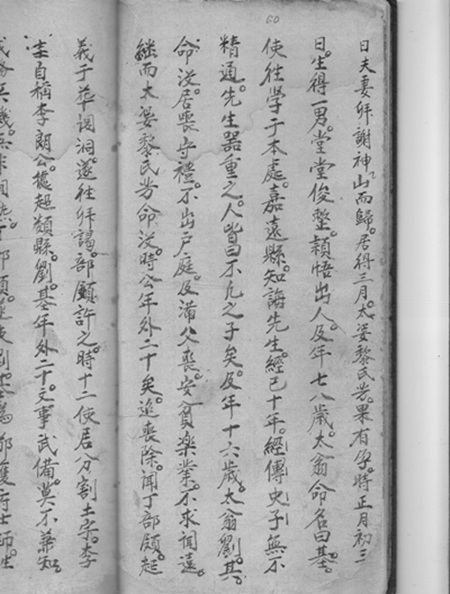 60
日夫妻拜謝神山而歸。居得三月。太婆黎氏芳。果有孕。時正月初三
日。生得一男。堂堂俊整。穎悟出人。及年七八歲。太翁命名曰基。
使往學于本處。嘉遠縣。知誨先生。經已十年。經傳史子。無不
精通。先生器重之。人皆曰不凡之子矣。及年十六歲。太翁劉其。
命沒。居喪守禮。不出戶庭。及滿父喪。安貧楽業。不求聞達。
継而太婆黎氏芳命沒。時公年外二十矣。迨喪除。聞丁部領。起
義于華閭洞。遂往拜謁。部領許之。時十二使君分割土宇。李
圭自稱李朗公。據超類縣。劉基年外二十。文事武備。莫不兼知。